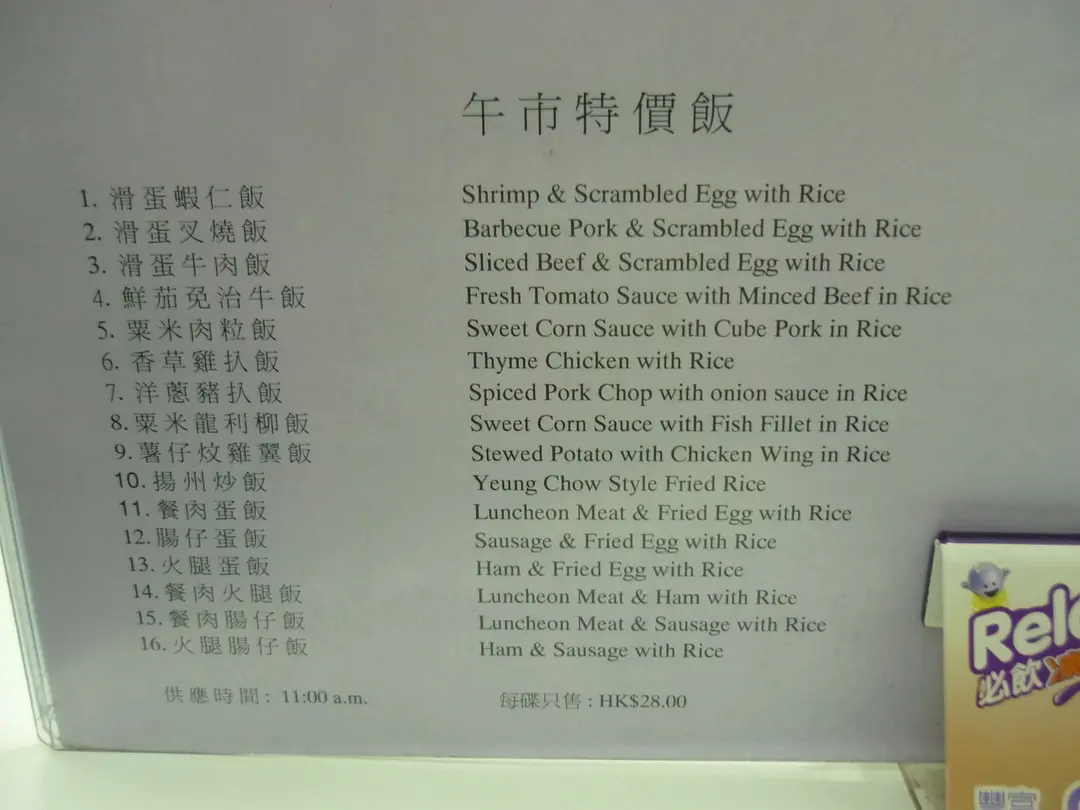 午市特價飯
1. 滑蛋蝦仁飯 Shrimp & Scrambled Egg with Rice
2. 滑蛋叉燒飯 Barbecue Pork & Scrambled Egg with Rice
3. 滑蛋牛肉飯 Sliced Beef & Scrambled Egg with Rice
4. 鮮茄免治牛飯 Fresh Tomato Sauce with Minced Beef in Rice
5. 粟米肉粒飯 Sweet Corn Sauce with Cube Pork in Rice
6. 香草雞扒飯 Thyme Chicken with Rice
7. 洋蔥豬扒飯 Spiced Pork Chop with onion sauce in Rice
8. 粟米龍利柳飯 Sweet Corn Sauce with Fish Fillet in Rice
9. 薯仔炆雞翼飯 Stewed Potato with Chicken Wing in Rice
10. 揚州炒飯 Yeung Chow Style Fried Rice
11. 餐肉蛋飯 Luncheon Meat & Fried Egg with Rice
12. 腸仔蛋飯 Sausage & Fried Egg with Rice
13. 火腿蛋飯 Ham & Fried Egg with Rice
14. 餐肉火腿飯 Luncheon Meat & Ham with Rice
15. 餐肉腸仔飯 Luncheon Meat & Sausage with Rice
16. 火腿腸仔飯 Ham & Sausage with Rice
供應時間: 11:00 a.m. 每碟只售: HK$28.00
必飲